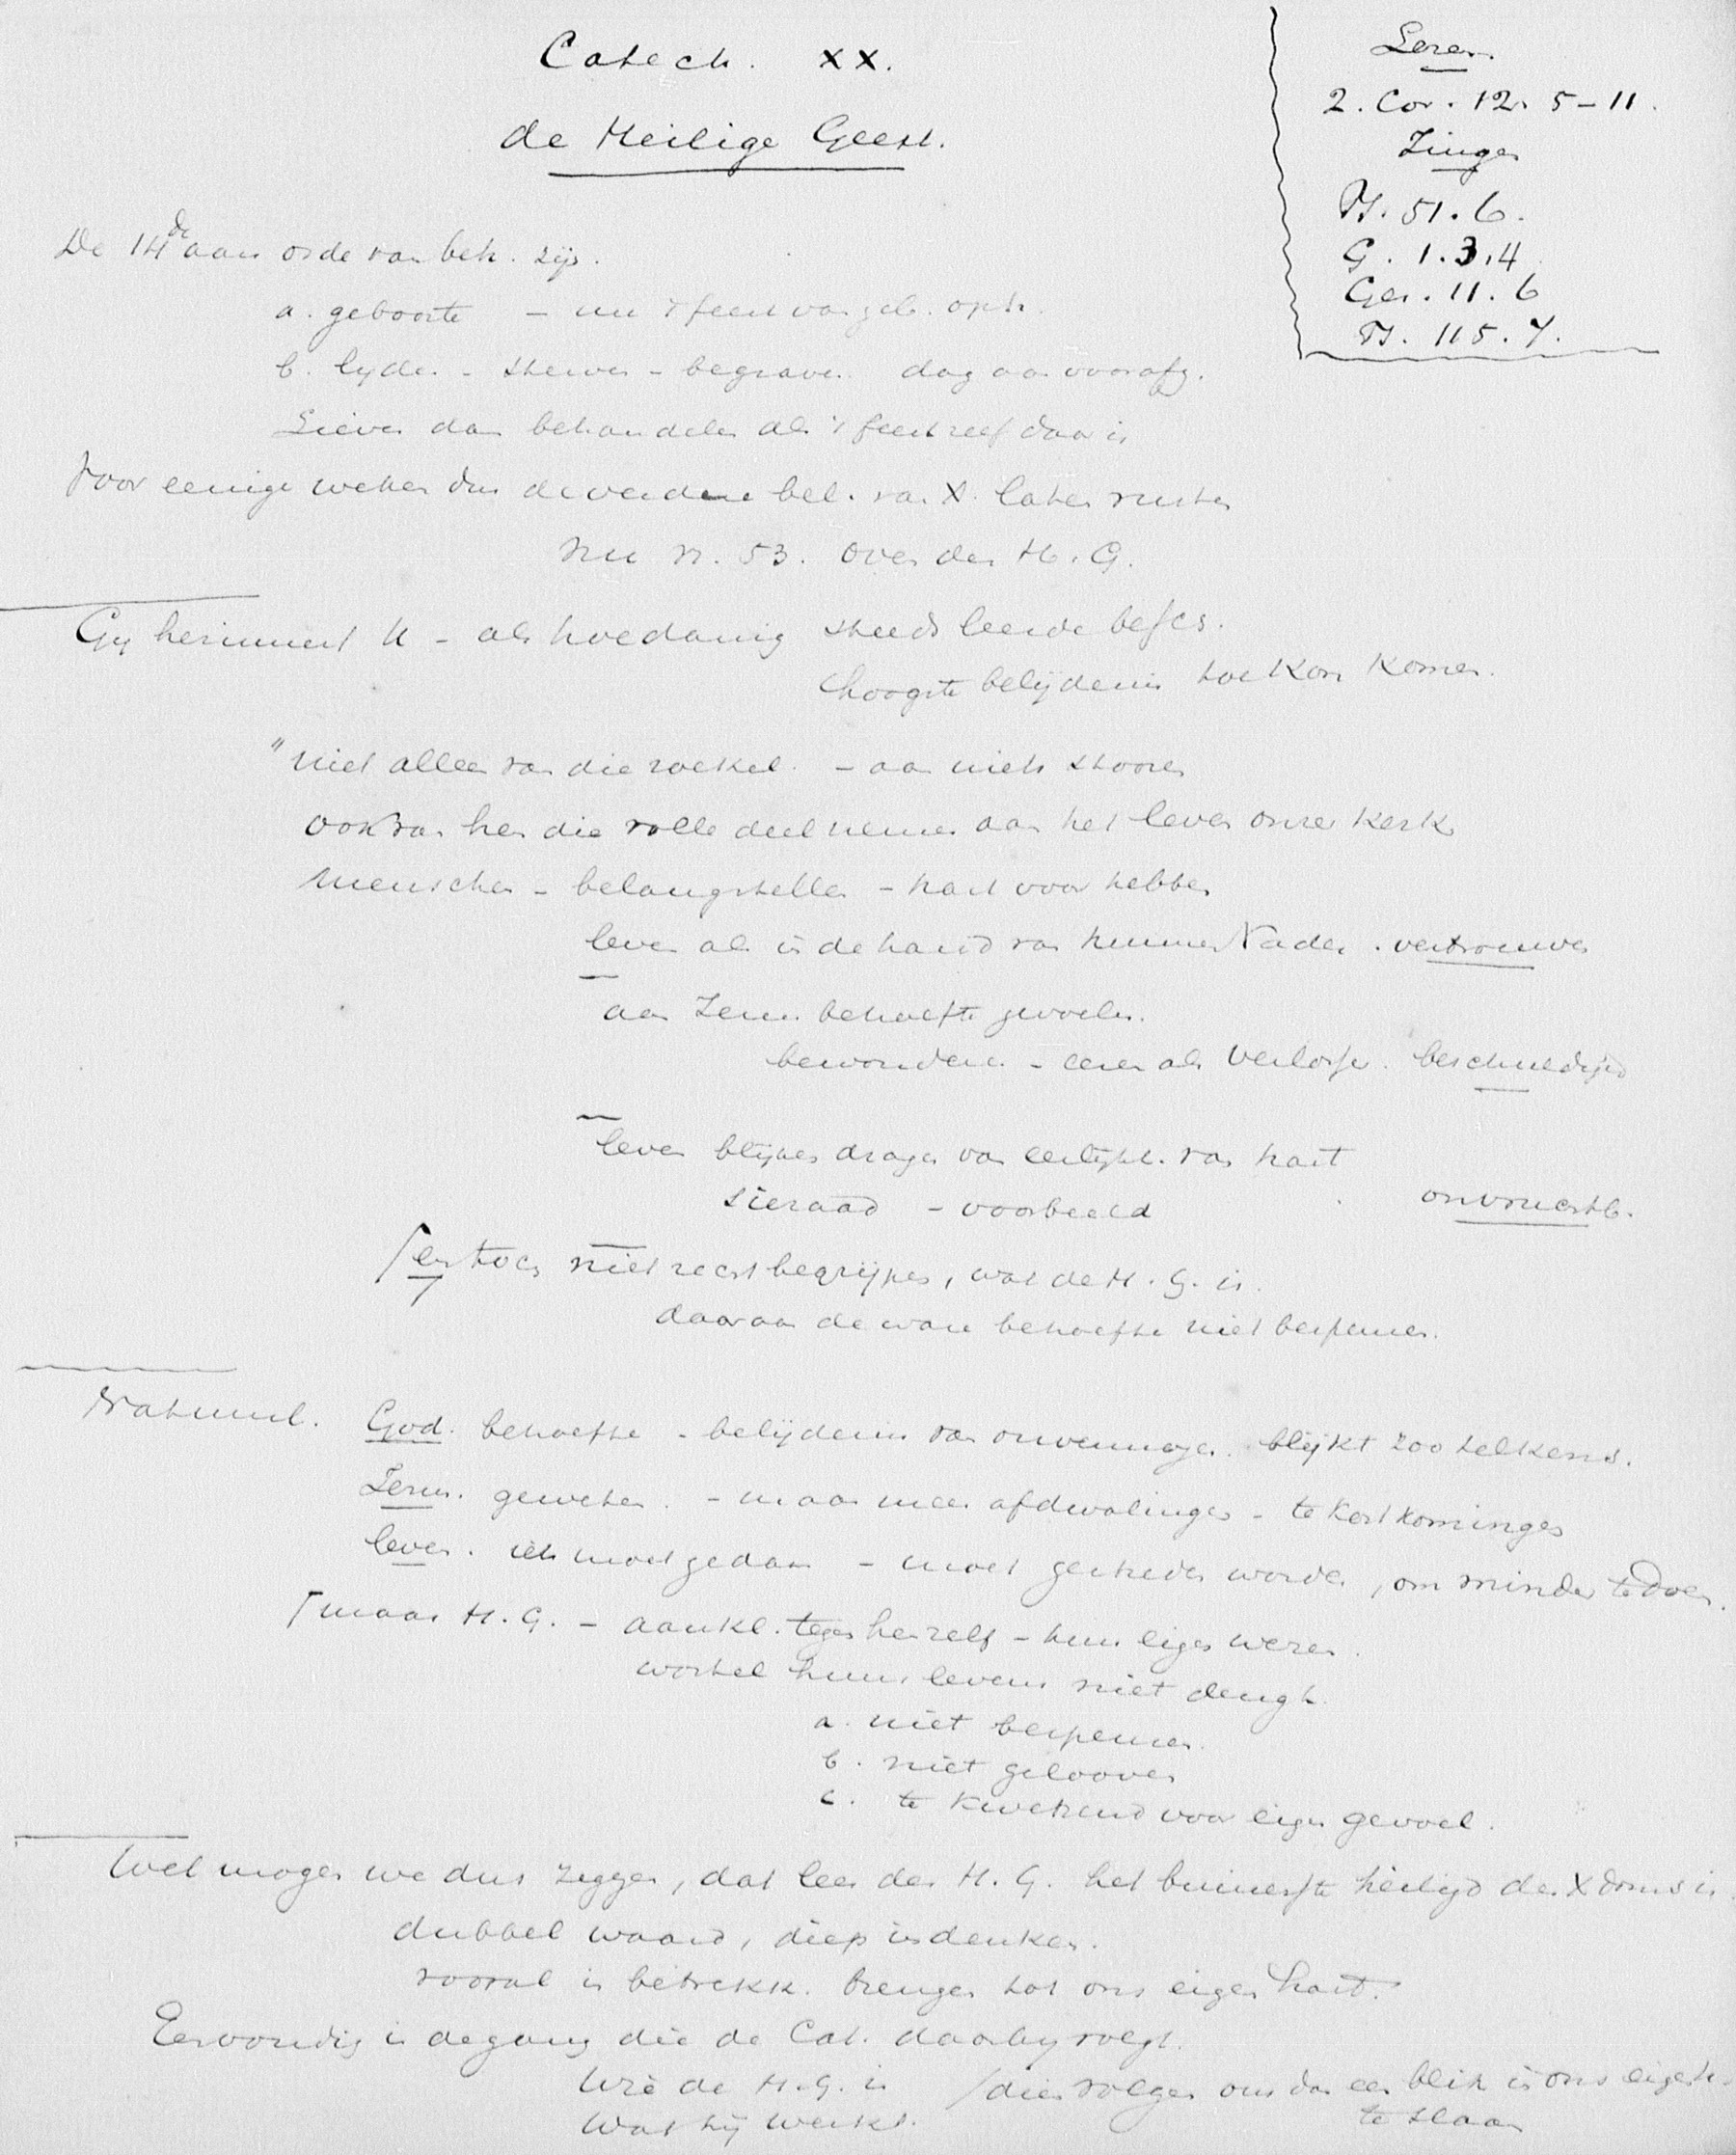 Catech. XX.
de Heilige Geest.
Lezen
2. Cor. 12. 5-11.
Zingen
Ps. 51. 6.
G. 1. 3. 4
Gez. 11. 6
Ps. 115. 7.
De 14de aan orde van beh. zijn.
a. geboorte - nu 't feest van geb.
b. lyden - sterven - begraven dag aan voorafg.
Liever dan behandelen als 't feest zelf daar is
Voor eenige weken dus de verdere bel. van X. laten rusten
Nu n. 53. over den H. G.
Gy herinnert U - als hoedanig steeds leerde besch.
hoogste belijdenis toe kon komen.
"niet alleen van die roekel. - aan niets storen
ook van hen die volle deel nemen aan het leven onzer kerk
menschen - belangstellen - hart voor hebben
leven als in de hand van hunnen Vader. vertrouwen
aan Jezus behoefte gevoelen.
bewonderen - eeren als Verlosser. beschuldigd
leven blijken dragen van eerlijkh. van hart
sieraad - voorbeeld onvruchtb.
en toch niet recht begrijpen, wat de H. G. is.
daaraan de ware behoefte niet bespeuren.
Natuurl. God. behoefte - belijdenis van onvermogen. blijkt zoo telkens.
Jezus. geweten. - maar meer afdwalingen - te kortkomingen
leven. iets moet gedaan - moet gestreden worden, om minder te doen.
maar H. G. - aankl. tegen henzelf - hun eigen wezen.
wortel huns levens niet deugt.
a. niet bespeuren.
b. niet gelooven
c. te kwetsend voor eigen gevoel.
Wel mogen we dus zeggen, dat leer den H. G. het binnenste heiligd. des Xdoms is
dubbel waard, diep indenken.
vooral in betrekk. brengen tot ons eigen hart.
Eenvoudig is de gang die de Cat. daarbij volgt.
Wie de H. G. is
Wat hij werkt.
dien volgen om dan een blik in ons eigen h.
te slaan